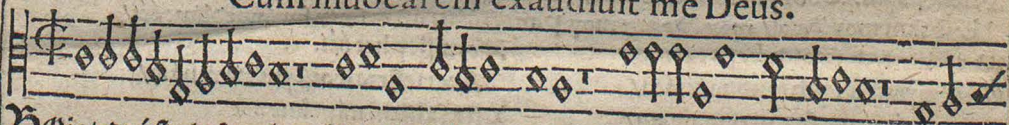 Cum inuocarem exaudiuit me Deus.